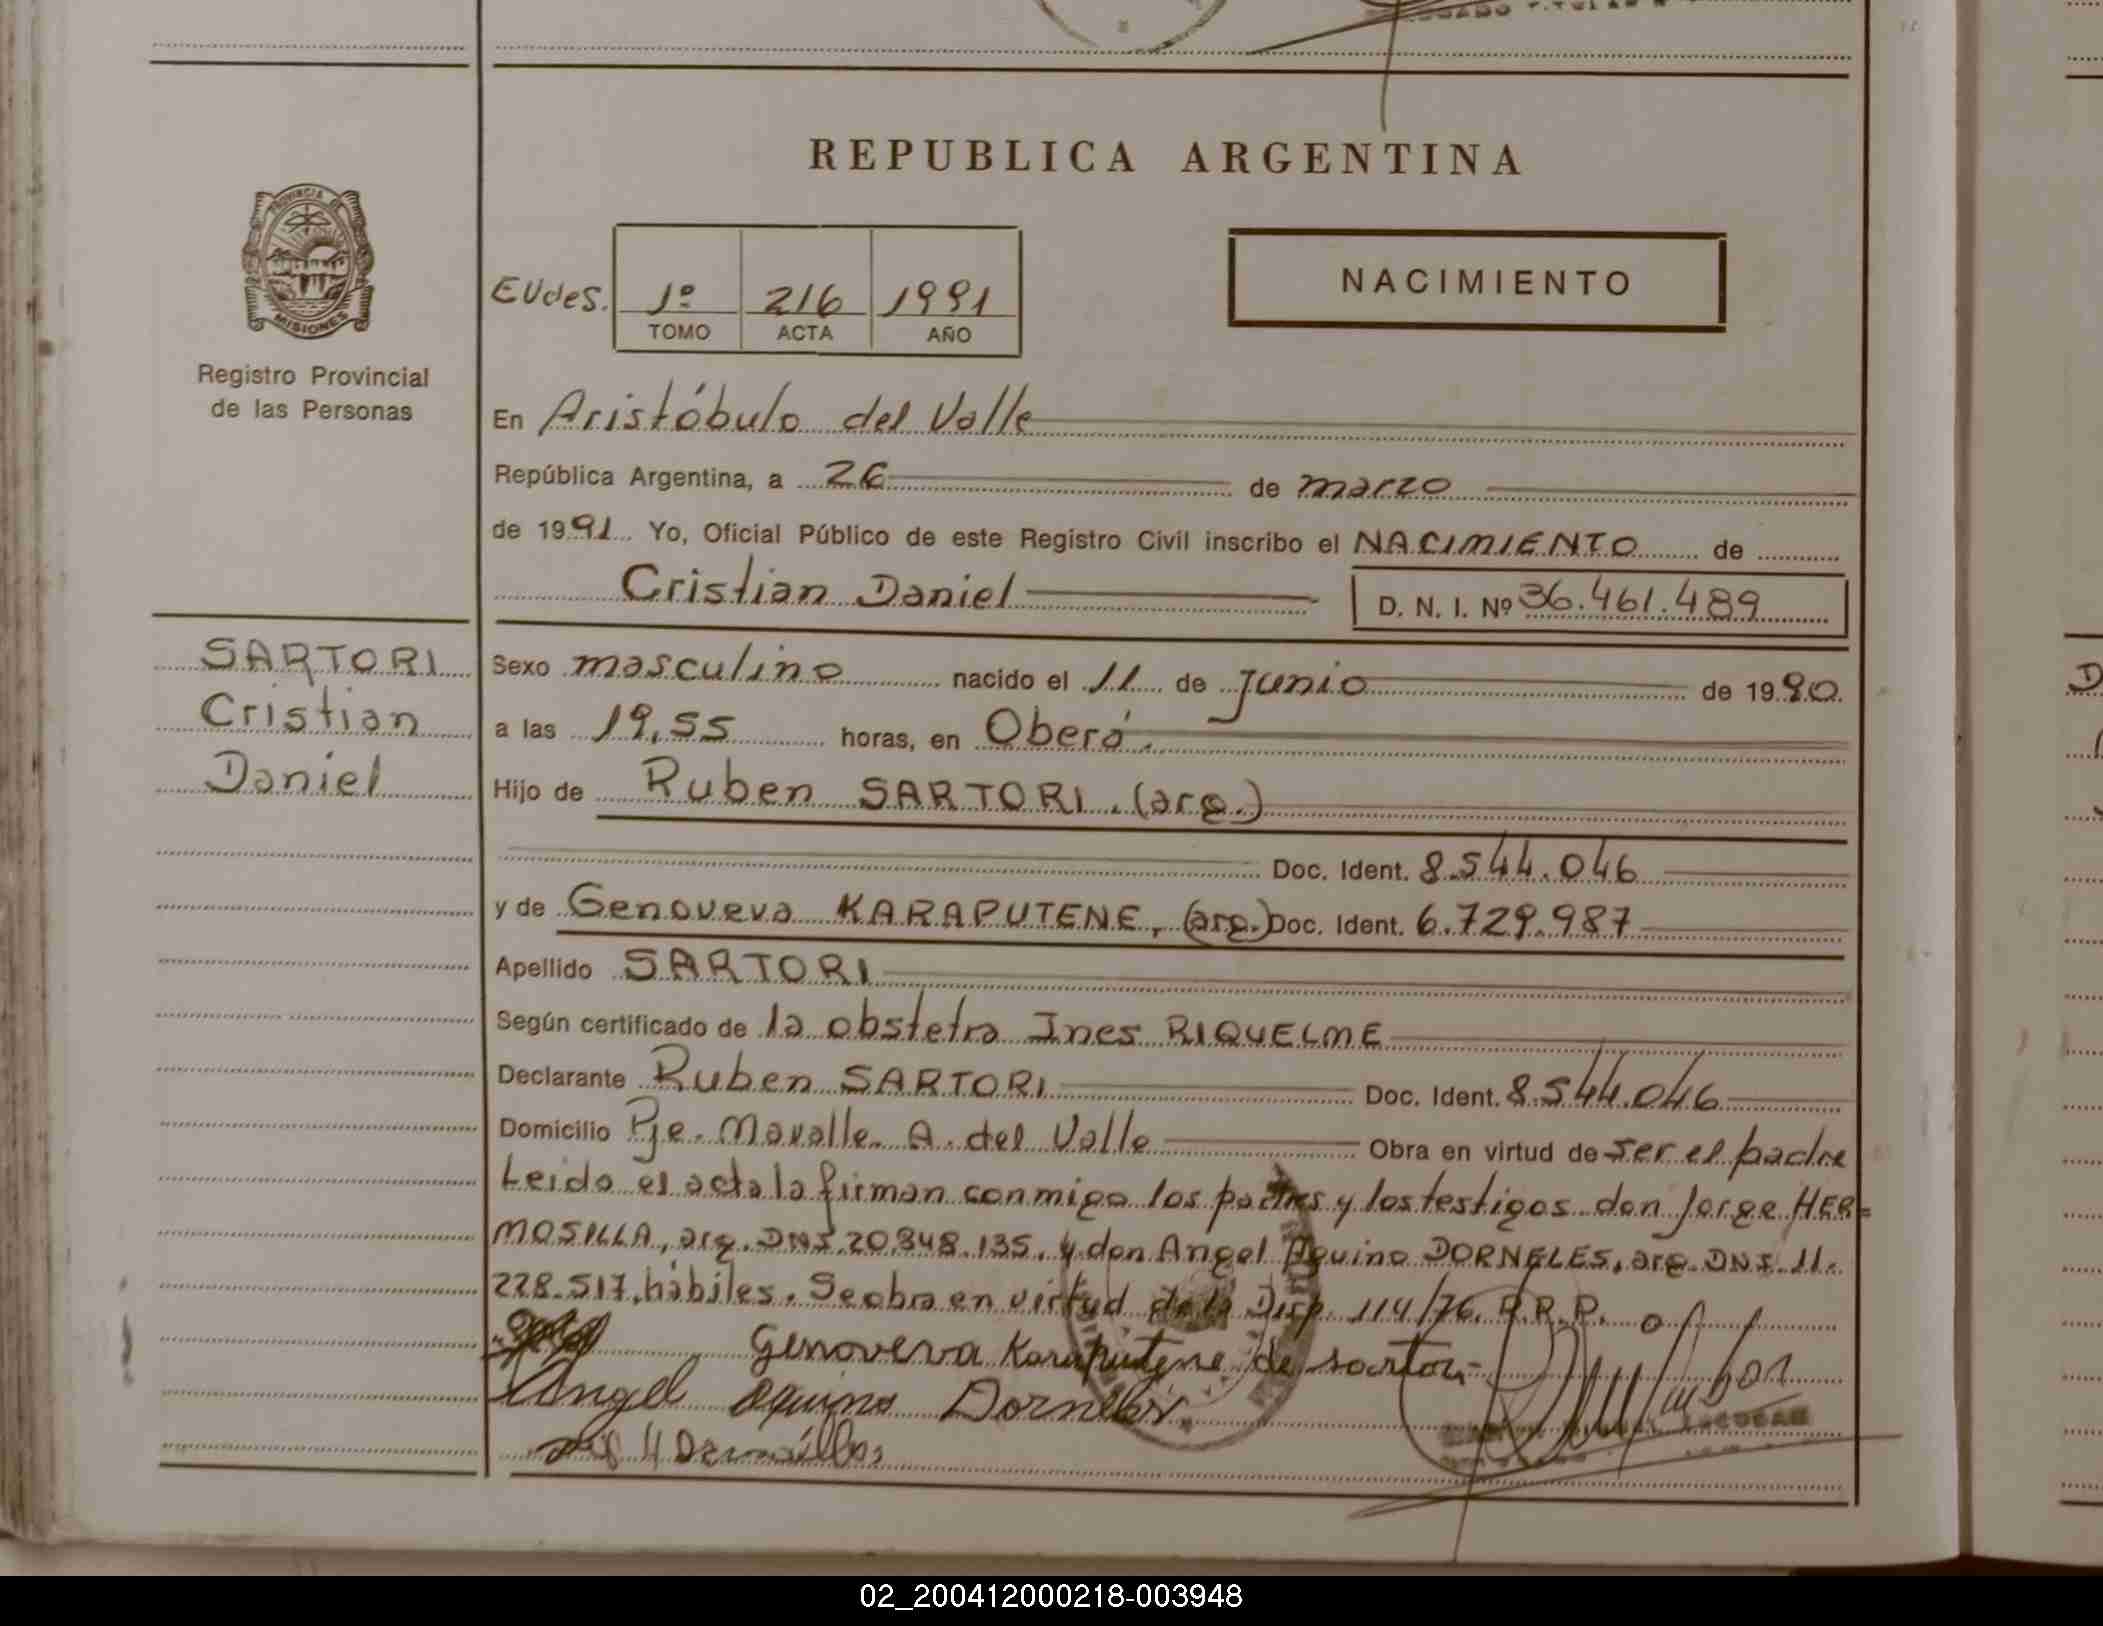 REPUBLICA ARGENTINA
PROVINCIA DE
MISIONES
Registro Provincial
de las Personas
EUdes. 1º 216 1991
TOMO ACTA AÑO
NACIMIENTO
En Aristóbulo del Valle
República Argentina, a 26 de marzo
de 1991 Yo, Oficial Público de este Registro Civil inscribo el NACIMIENTO de
Cristian Daniel D. N. I. Nº 36.461.489
SARTORI
Cristian
Daniel
Sexo masculino nacido el 11 de Junio de 1990.
a las 19,55 horas, en Oberá.
Hijo de Ruben SARTORI. (arg.)
Doc. Ident. 8.544.046
y de Genoveva KARAPUTENE, (arg.) Doc. Ident. 6.729.987
Apellido SARTORI
Según certificado de la obstetra Ines RIQUELME
Declarante Ruben SARTORI Doc. Ident. 8.544.046
Domicilio Pje. Mavalle. A. del Valle Obra en virtud de ser el padre
Leida el acta la firman conmigo los padres y los testigos don Jorge HER=
MOSILLA, arg. DNI. 20.848.135. y don Angel Aquino DORNELES, arg. DNI. 11.
228.517, hábiles. Se obra en virtud de la Disp. 114/76. R.R.P.
Genoveva Karaputene de sartori
Angel aquino Dorneles
02_200412000218-003948